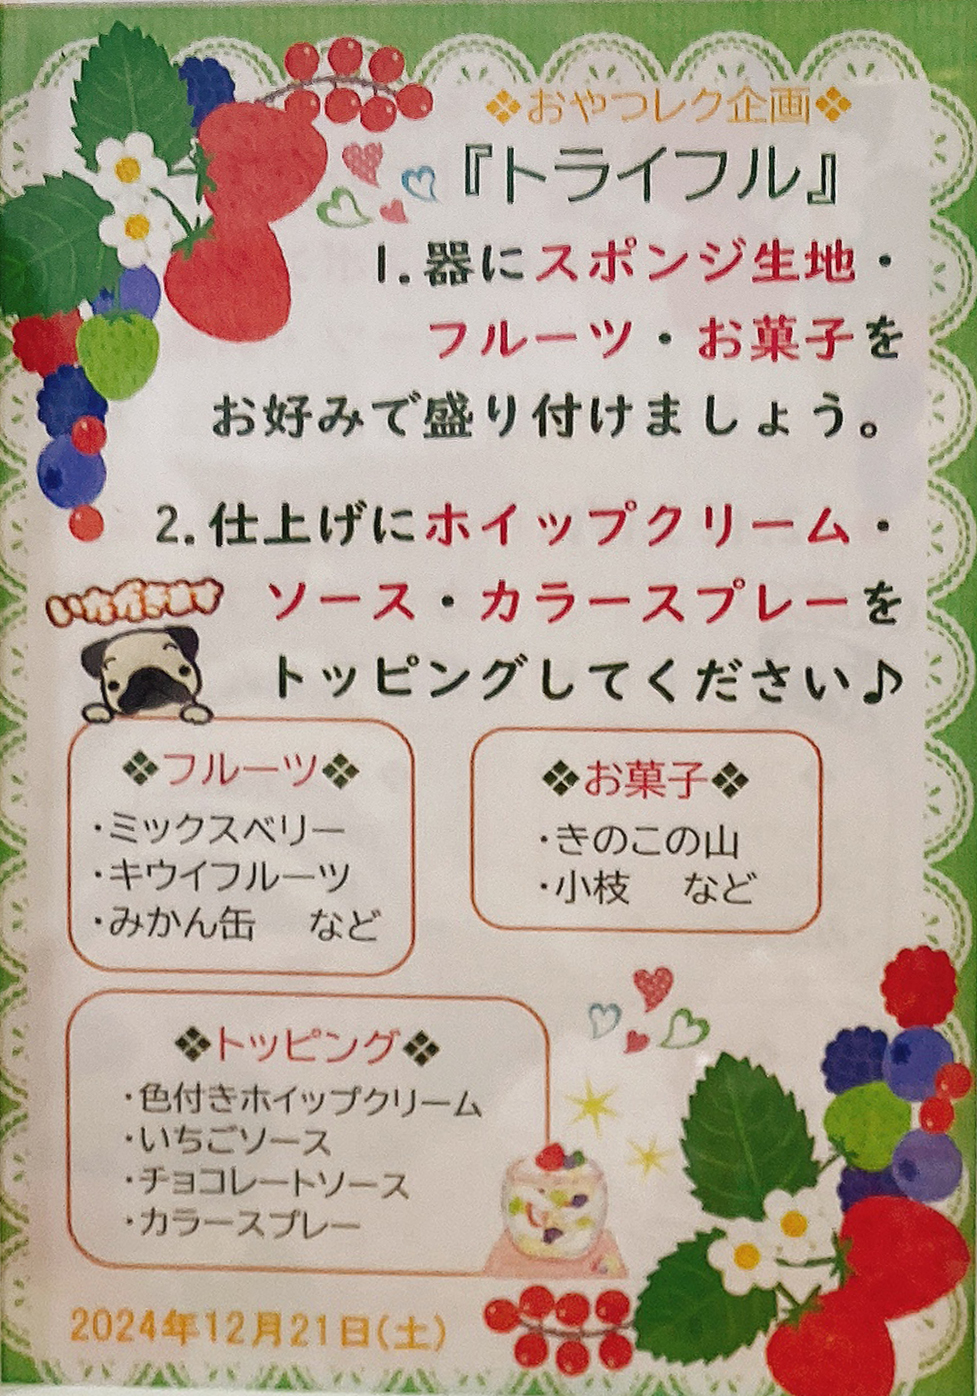 ❖おやつレク企画❖
『トライフル』
1.器にスポンジ生地・
フルーツ・お菓子を
お好みで盛り付けましょう。
2.仕上げにホイップクリーム・
ソース・カラースプレーを
トッピングしてください♪
いただきます
❖フルーツ❖
・ミックスベリー
・キウイフルーツ
・みかん缶 など
❖お菓子❖
・きのこの山
・小枝 など
❖トッピング❖
・色付きホイップクリーム
・いちごソース
・チョコレートソース
・カラースプレー
2024年12月21日(土)